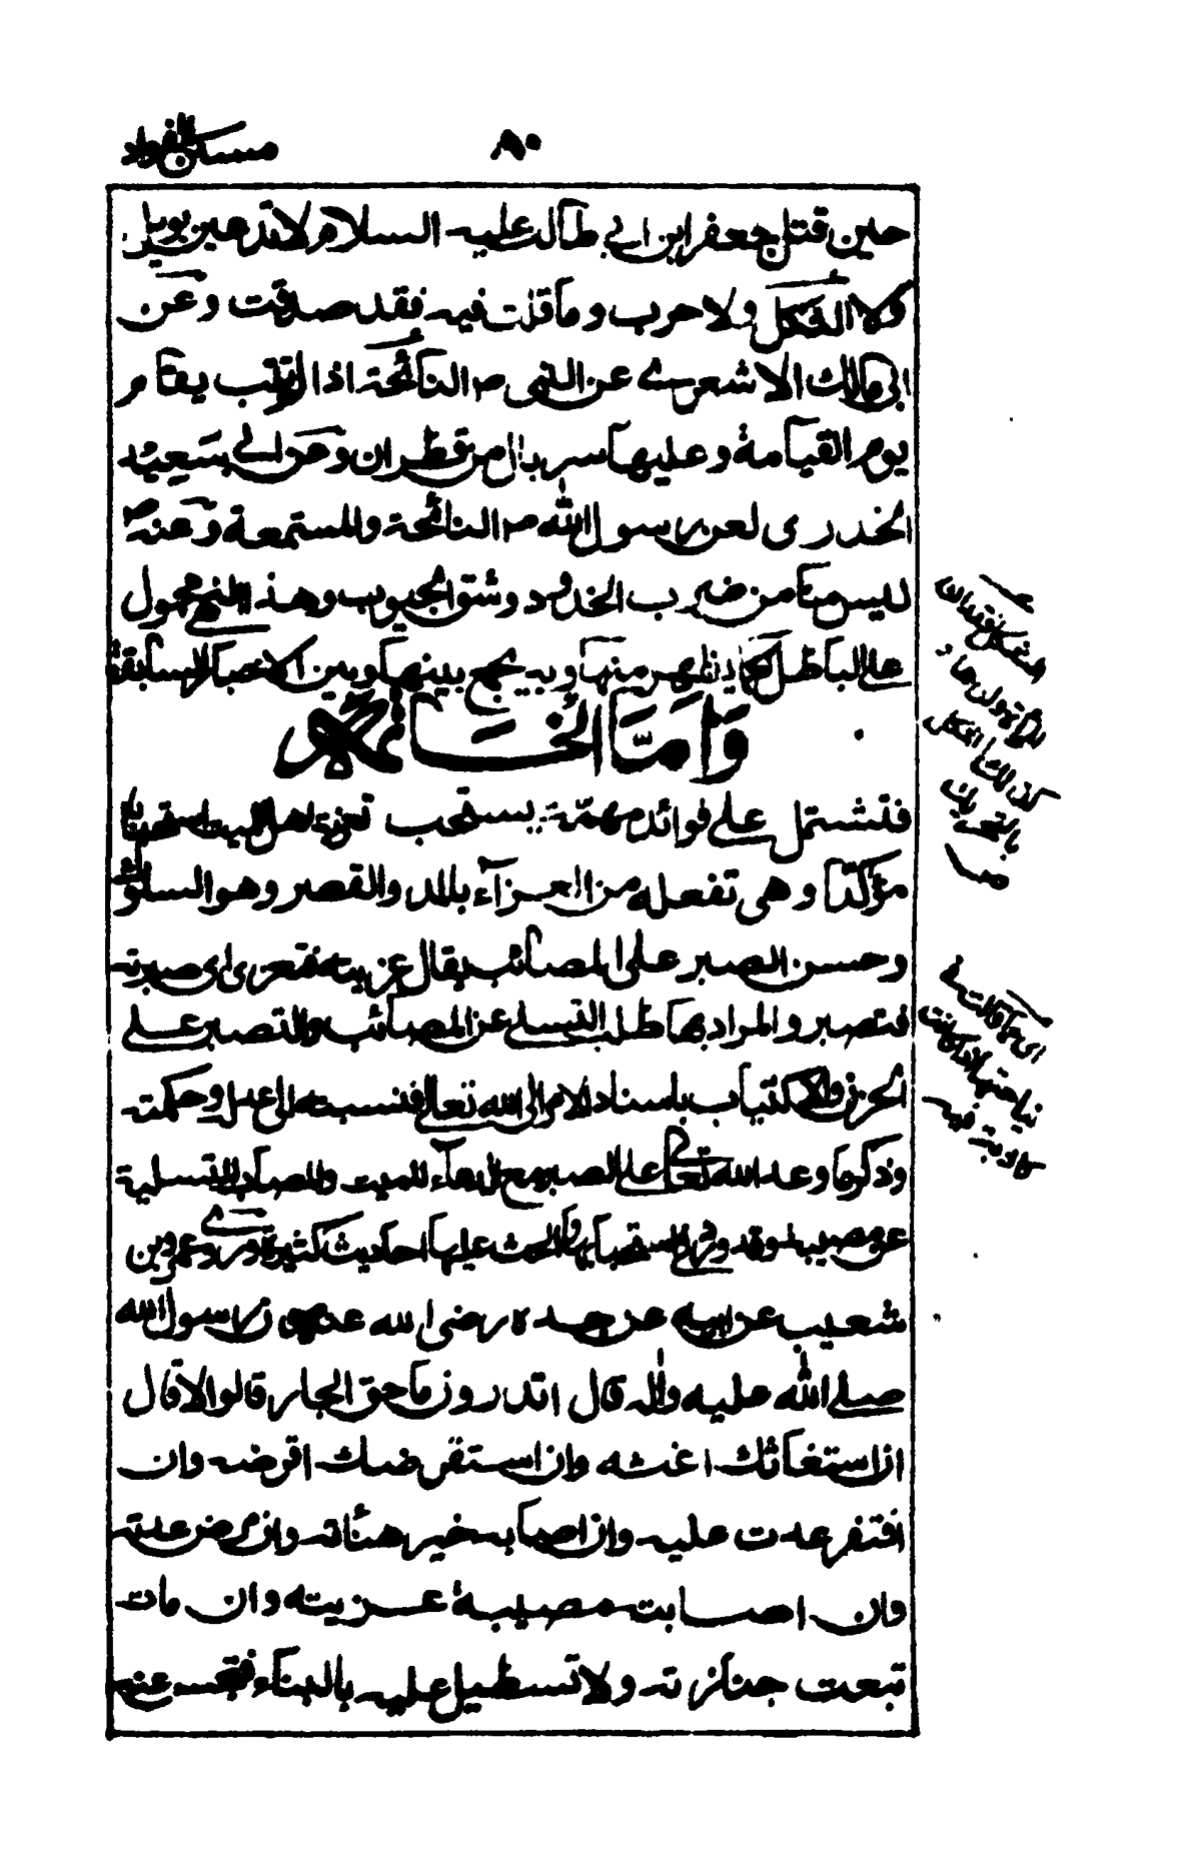 مسكن الفؤاد
٨٠
حين قتل جعفر ابن ابي طالب عليه السلام لا تدعين بويل
ولا ثكل ولا حرب وما قلت فيه فقد صدقت وعن
ابى مالك الاشعري عن النبى ص النائحة اذا لم تتب يقام
يوم القيامة وعليها سربال من قطران وعن ابي سعيد
الخدرى لعن رسول الله ص النائحة والمستمعة وعنه ص
ليس منا من ضرب الخدود وشق الجيوب وهذا النهي محمول
على الباطل كما يظهر منها وبه يجمع بينها وبين الاخبار السابقة
وَامَّا الخَاتمة
فتشتمل على فوائد مهمّة يستحب تعزية اهل الميت استحبابا
مؤكدًا وهى تفعلة من العزآء بالمد والقصر وهو السلو
وحسن الصبر على المصائب يقال عزيته فتعزى اى صبرته
فتصبر والمراد بها طلب التسلي عن المصائب والتصبر على
الحزن والاكتياب باسناد الامر الى الله تعالى ونسبته الى عدله وحكمته
وذكر ما وعد الله تعالى على الصبر مع الدعآء للميت والمصاب لتسليته
عن مصيبته وقد ورد في استحبابها والحث عليها احاديث كثيرة وروى عمرو بن
شعيب عن ابيه عن جده رضى الله عنهم ان رسول الله
صلى الله عليه واله قال اتدرون ما حق الجار قالوا لا قال
ان استغاثك اغثته وان استقرضك اقرضته وان
افتقر عدت عليه وان اصابه خير هنئاته وان مرض عدته
وان اصابته مصيبة عزيته وان مات
تبعت جنازته ولا تستطيل عليه بالبناء فتحجب عنه